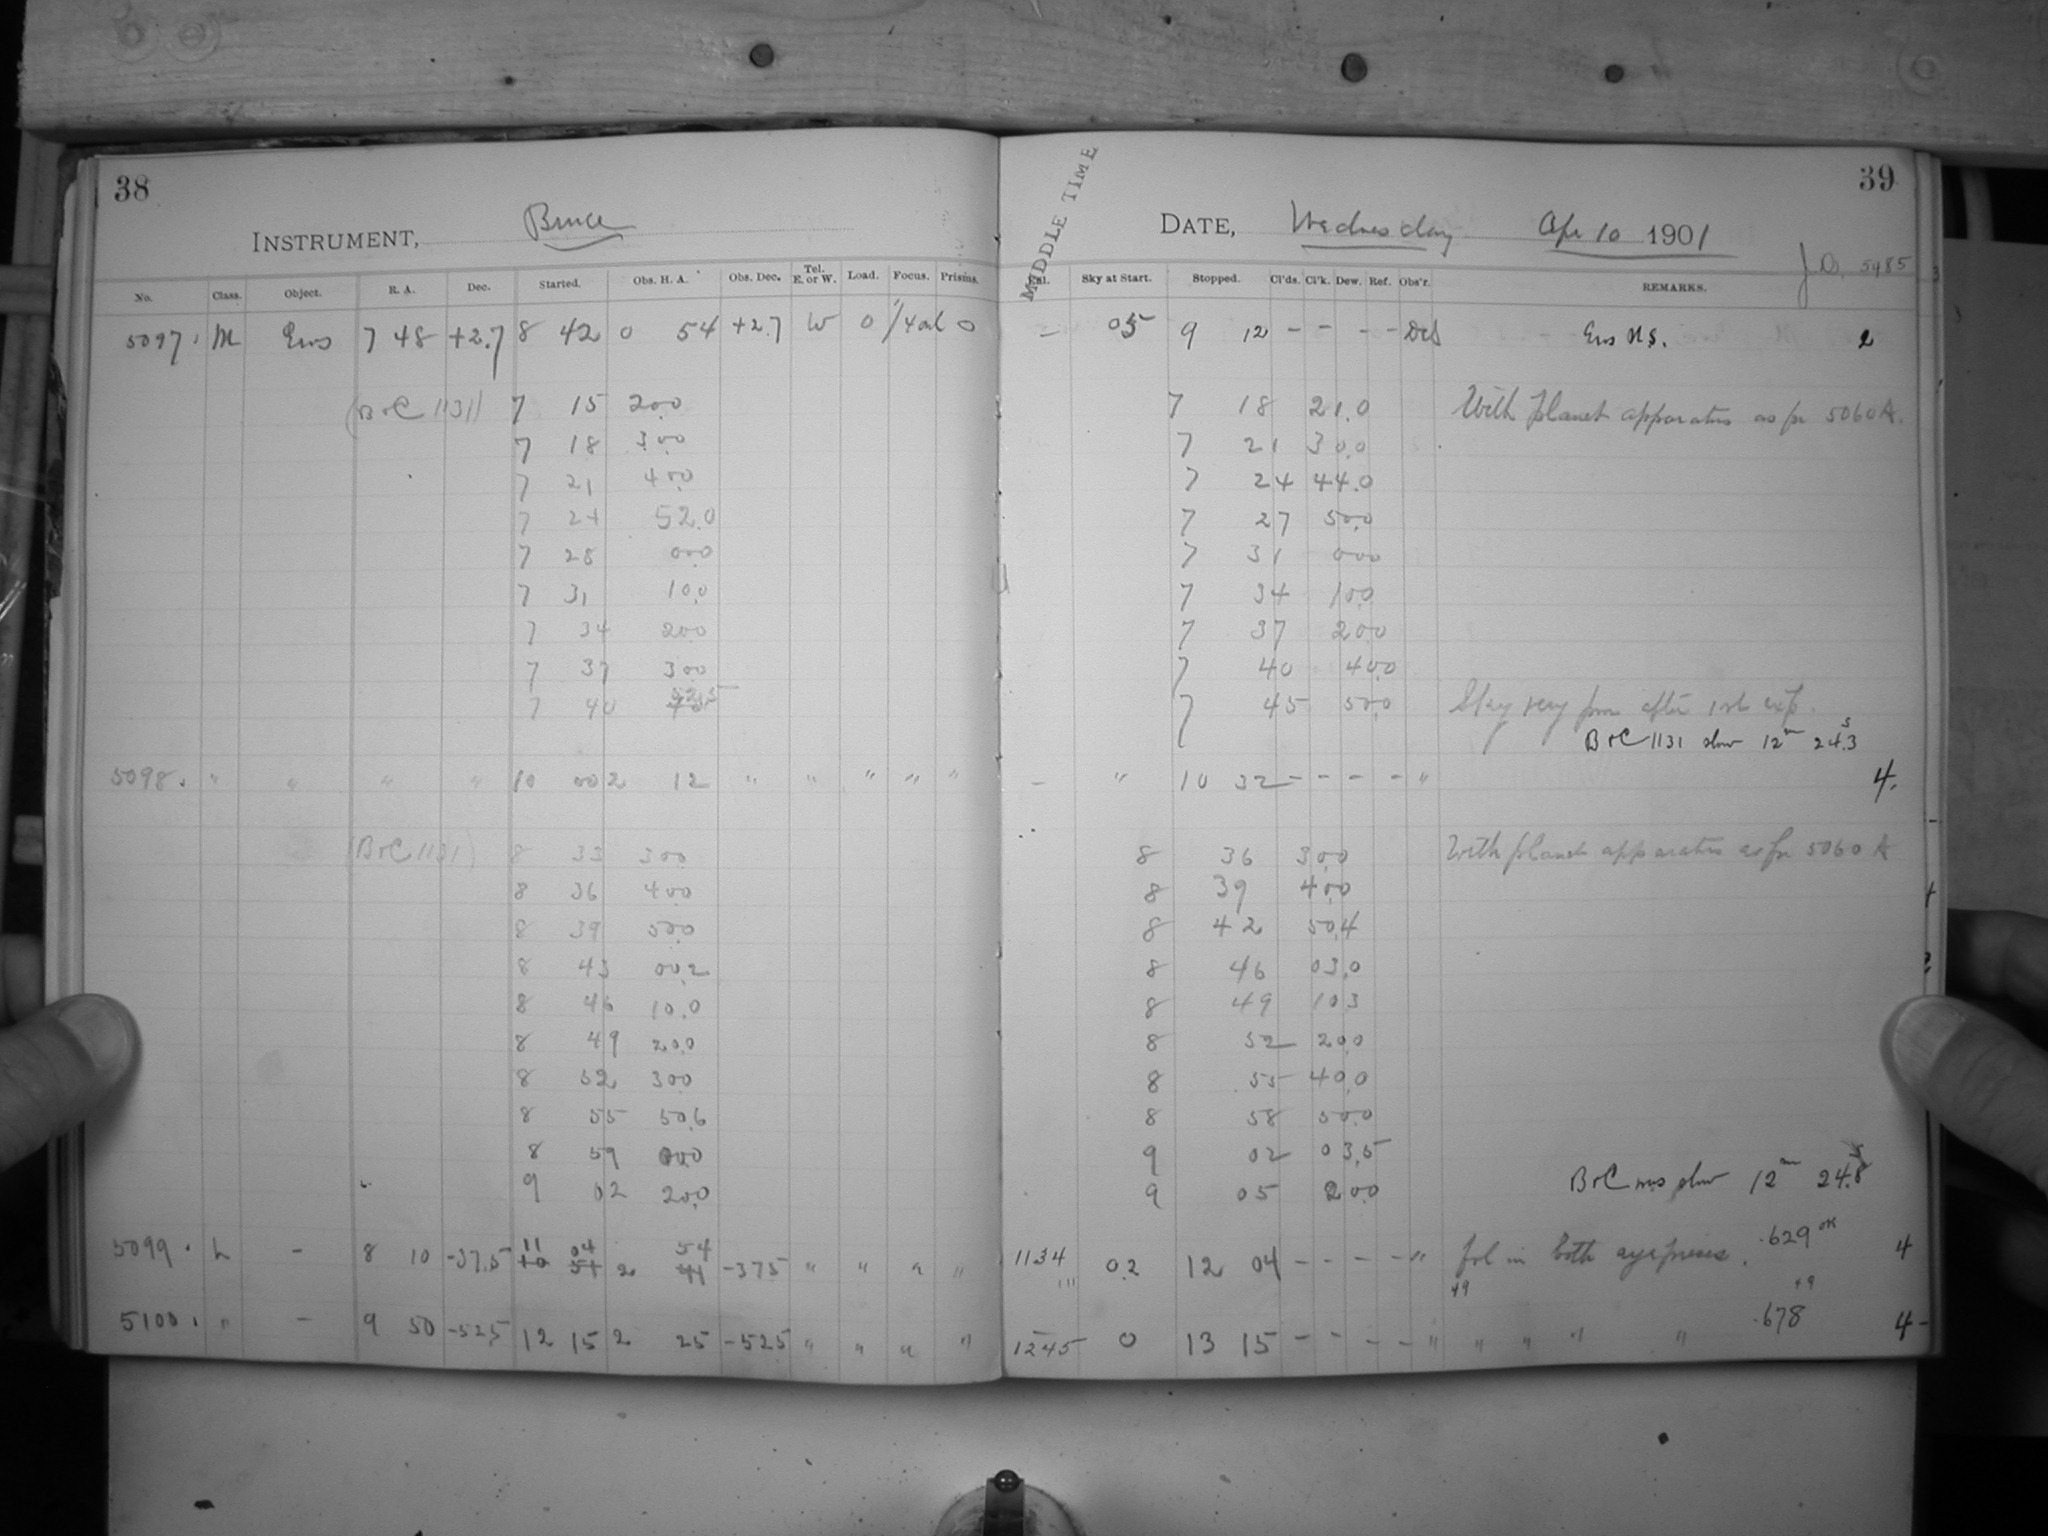 38
INSTRUMENT, Bruce
No. Class. Object. R. A. Dec. Started. Obs. H. A. Obs. Dec. Tel. E. or W. Load. Focus. Prisms.
5097. M Eros 7 48 +2.7 8 42 0 54 +2.7 W 0 0
(B&C 1131) 7 15 20.0
7 18 30.0
7 21 40.0
7 24 52.0
7 28 00.0
7 31 10.0
7 34 20.0
7 37 30.0
7 40 52.5
5098. " " " " 10 00 2 12 " " " " "
(B&C 1131) 8 33 30.0
8 36 40.0
8 39 50.0
8 43 00.2
8 46 10.0
8 49 20.0
8 52 30.0
8 55 50.6
8 59 00.0
9 02 20.0
5099. L - 8 10 -37.5 11 04 2 54 -37.5 " " " "
5100. " - 9 50 -52.5 12 15 2 25 -52.5 " " " "
39
MIDDLE TIME
DATE, Wednesday Apr 10 1901
J.D. 5485
Sky at Start. Stopped. Cl'ds. Cl'k. Dew. Ref. Obs'r. REMARKS.
- 05 9 12 - - - - Eros 2
7 18 21.0 With planet apparatus as for 5060 A.
7 21 30.0
7 24 44.0
7 27 50.0
7 31 00.0
7 34 10.0
7 37 20.0
7 40 40.0
7 45 50.0 Sky very poor after 1st exp.
B&C 1131 slow 12m 24.3s
- " 10 32 - - - - " 4.
8 36 30.0 With planet apparatus as for 5060 A
8 39 40.0
8 42 50.4
8 46 03.0
8 49 10.3
8 52 20.0
8 55 40.0
8 58 50.0
9 02 03.5
9 05 20.0
B&C was slow 12m 24.8s
1134 0.2 12 04 - - - - " fol in both .629 OK 4
49 49
1245 0 13 15 - - - - " " " " " .678 4